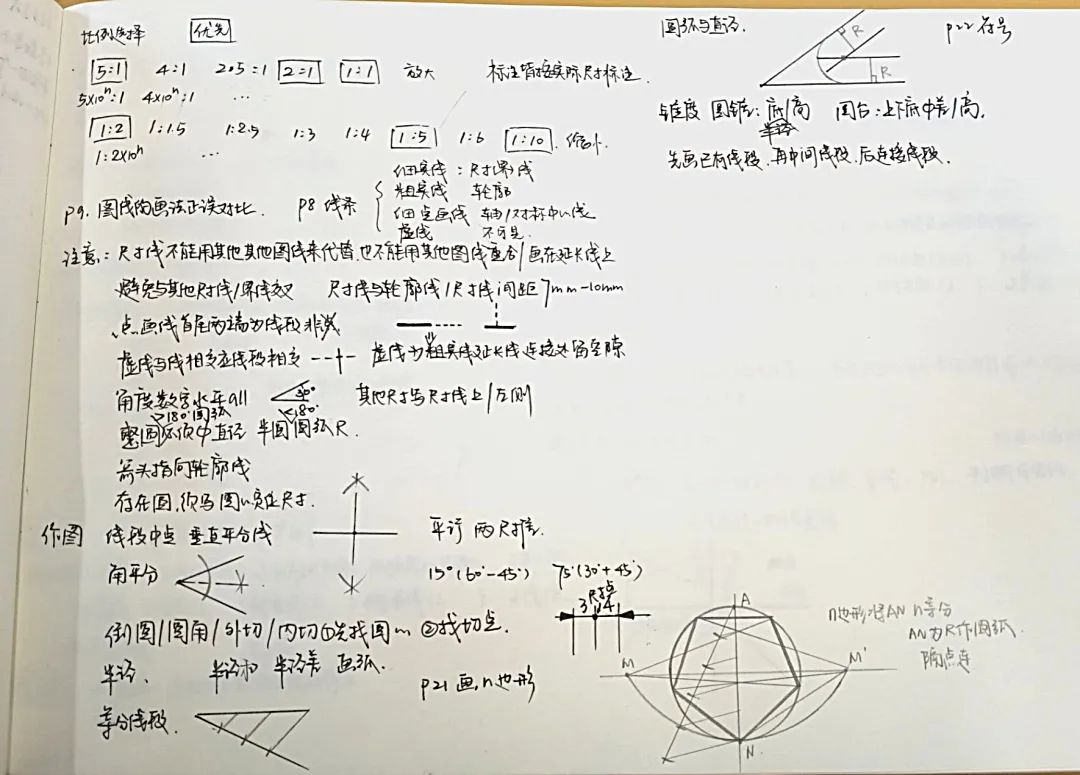 比例选择 优先
5:1 4:1 2.5:1 2:1 1:1 放大 标注皆按实际尺寸标注.
5×10ⁿ:1 4×10ⁿ:1 …
1:2 1:1.5 1:2.5 1:3 1:4 1:5 1:6 1:10. 缩小.
1:2×10ⁿ …
p9. 图线的画法正误对比. p8 线条
细实线:尺寸界线
粗实线 轮廓
细点画线 轴/对称中心线
虚线 不可见.
注意: 尺寸线不能用其他其他图线来代替,也不能用其他图线重合/画在延长线上
避免与其他尺寸线/界线 尺寸线与轮廓线/尺寸线间距7mm-10mm
点画线首尾两端为线段非
虚线与线相交应线段相交 虚线为粗实线延长线连接处留空隙
角度数字水平all 90° 其他尺寸与尺寸线上/左侧
>180°圆弧 <180°
整圆必须中直径 半圆圆弧R.
箭头指向轮廓线
存在圆,须写圆心定位尺寸.
作图 线段中点 垂直平分线 平行 两尺推.
角平分 15°(60°-45°) 75°(30°+45°)
尺寸点
3 4
倒圆/圆角/外切/内切①先找圆心 ②找切点.
半径. 半径和 半径差 画弧.
p21 画n边形
等分线段.
A
M M'
N
n边形将AN n等分
AN为R作圆弧.
隔点连
圆弧与直径. R R p22符号
锥度 圆锥:底/高 圆台:上下底中差/高.
半径
先画已有线段.再中间线段.后连接线段.